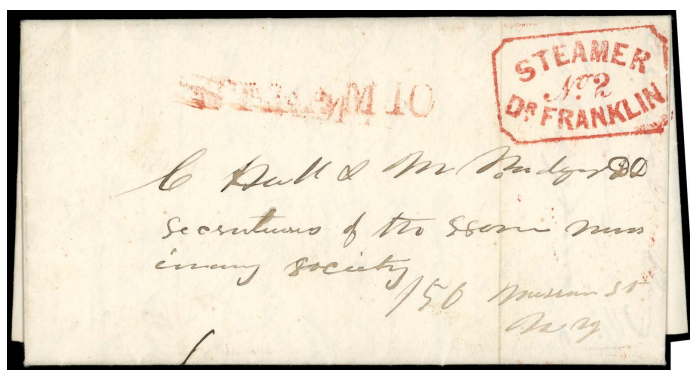 STEAMER
No. 2
DR. FRANKLIN
STEAM 10
C Hall & M Badger DD
Secretaries of the Home Miss
ionary Society
150 Nassau St
N Y